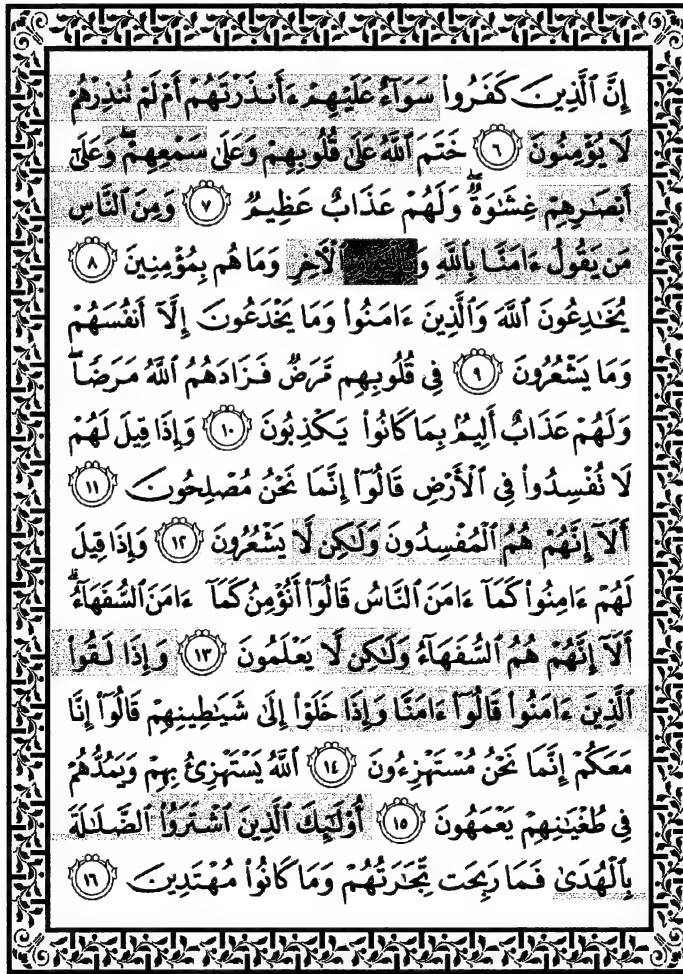 إِنَّ ٱلَّذِينَ كَفَرُوا۟ سَوَآءٌ عَلَيْهِمْ ءَأَنذَرْتَهُمْ أَمْ لَمْ تُنذِرْهُمْ
لَا يُؤْمِنُونَ ٦ خَتَمَ ٱللَّهُ عَلَىٰ قُلُوبِهِمْ وَعَلَىٰ سَمْعِهِمْ ۖ وَعَلَىٰٓ
أَبْصَـٰرِهِمْ غِشَـٰوَةٌ ۖ وَلَهُمْ عَذَابٌ عَظِيمٌ ٧ وَمِنَ ٱلنَّاسِ
مَن يَقُولُ ءَامَنَّا بِٱللَّهِ ٱلْـَٔاخِرِ وَمَا هُم بِمُؤْمِنِينَ ٨
يُخَـٰدِعُونَ ٱللَّهَ وَٱلَّذِينَ ءَامَنُوا۟ وَمَا يَخْدَعُونَ إِلَّآ أَنفُسَهُمْ
وَمَا يَشْعُرُونَ ٩ فِى قُلُوبِهِم مَّرَضٌ فَزَادَهُمُ ٱللَّهُ مَرَضًا ۖ
وَلَهُمْ عَذَابٌ أَلِيمٌۢ بِمَا كَانُوا۟ يَكْذِبُونَ ١٠ وَإِذَا قِيلَ لَهُمْ
لَا تُفْسِدُوا۟ فِى ٱلْأَرْضِ قَالُوٓا۟ إِنَّمَا نَحْنُ مُصْلِحُونَ ١١
أَلَآ إِنَّهُمْ هُمُ ٱلْمُفْسِدُونَ وَلَـٰكِن لَّا يَشْعُرُونَ ١٢ وَإِذَا قِيلَ
لَهُمْ ءَامِنُوا۟ كَمَآ ءَامَنَ ٱلنَّاسُ قَالُوٓا۟ أَنُؤْمِنُ كَمَآ ءَامَنَ ٱلسُّفَهَآءُ ۗ
أَلَآ إِنَّهُمْ هُمُ ٱلسُّفَهَآءُ وَلَـٰكِن لَّا يَعْلَمُونَ ١٣ وَإِذَا لَقُوا۟
ٱلَّذِينَ ءَامَنُوا۟ قَالُوٓا۟ ءَامَنَّا وَإِذَا خَلَوْا۟ إِلَىٰ شَيَـٰطِينِهِمْ قَالُوٓا۟ إِنَّا
مَعَكُمْ إِنَّمَا نَحْنُ مُسْتَهْزِءُونَ ١٤ ٱللَّهُ يَسْتَهْزِئُ بِهِمْ وَيَمُدُّهُمْ
فِى طُغْيَـٰنِهِمْ يَعْمَهُونَ ١٥ أُو۟لَـٰٓئِكَ ٱلَّذِينَ ٱشْتَرَوُا۟ ٱلضَّلَـٰلَةَ
بِٱلْهُدَىٰ فَمَا رَبِحَت تِّجَـٰرَتُهُمْ وَمَا كَانُوا۟ مُهْتَدِينَ ١٦